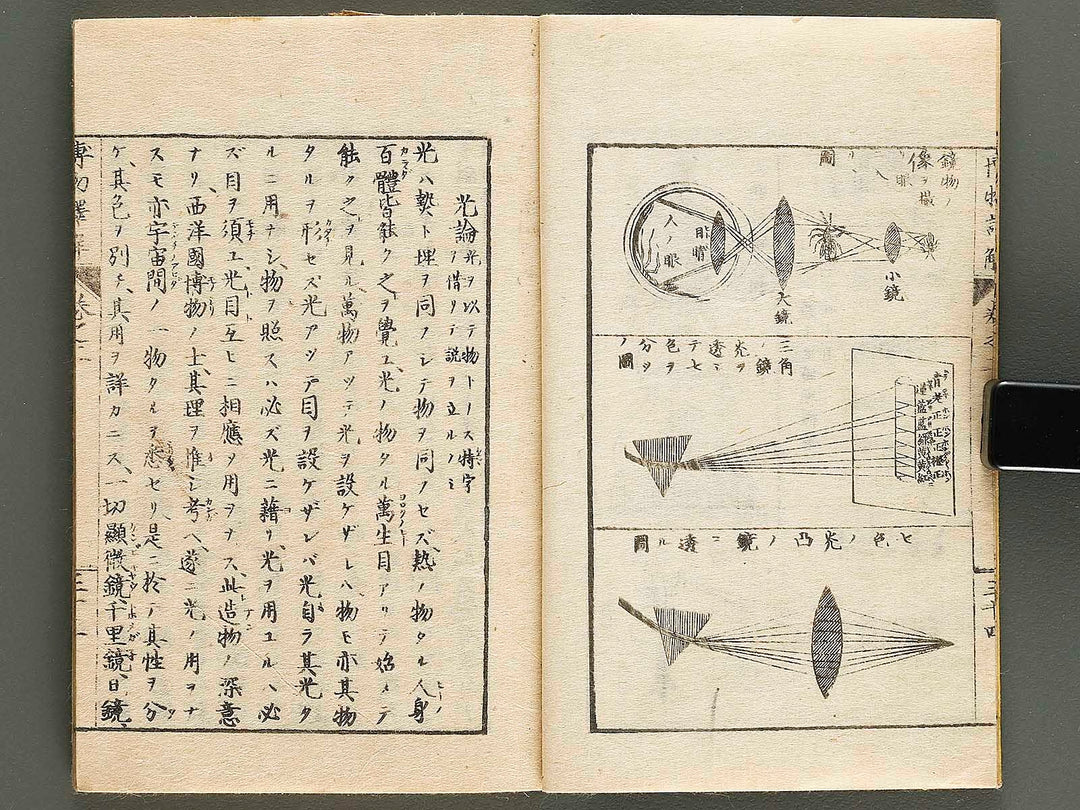 三十四
大鏡
小鏡
人ノ眼
眼睛
三角鏡ノ光ヲ透シテ七色ヲ分ツノ圖
七色ノ光凸ノ鏡ニ透ル圖
光論
光ヲ以テ物トナス特字
ヲ借リテ説ヲ立ルノミ
光ハ熱ト理ヲ同フシテ物ヲ同フセズ熱ノ物タル人身
百體皆能ク之ヲ覺ユ光ノ物タル萬生目アリテ始メテ
能ク之ヲ見ル萬物アツテ光ヲ設ケザレハ物モ亦其物
タルヲ形セズ光アツテ目ヲ設ケザレバ光自ラ其光タ
ルニ用ナシ物ヲ照スハ必ズ光ニ藉リ光ヲ用ユルハ必
ズ目ヲ須ユ光目互ヒニ相應ノ用ヲナス此造物ノ深意
ナリ西洋國博物ノ士其理ヲ推シ考ヘ遂ニ光ノ用ヲナ
スモ亦宇宙間ノ一物タルヲ悉セリ是ニ於テ其性ヲ分
ケ其色ヲ別チ其用ヲ詳カニス一切顯微鏡千里鏡日鏡